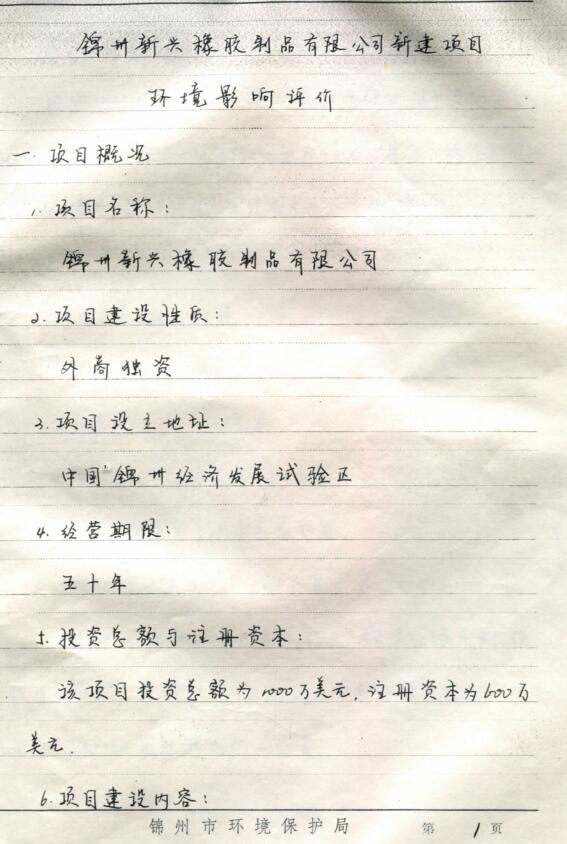 锦州新兴橡胶制品有限公司新建项目
环境影响评价
一.项目概况
1.项目名称:
锦州新兴橡胶制品有限公司
2.项目建设性质:
外商独资
3.项目设立地址:
中国锦州经济发展试验区
4.经营期限:
五十年
5.投资总额与注册资本:
该项目投资总额为1000万美元,注册资本为600万
美元.
6.项目建设内容:
锦州市环境保护局 第 1 页